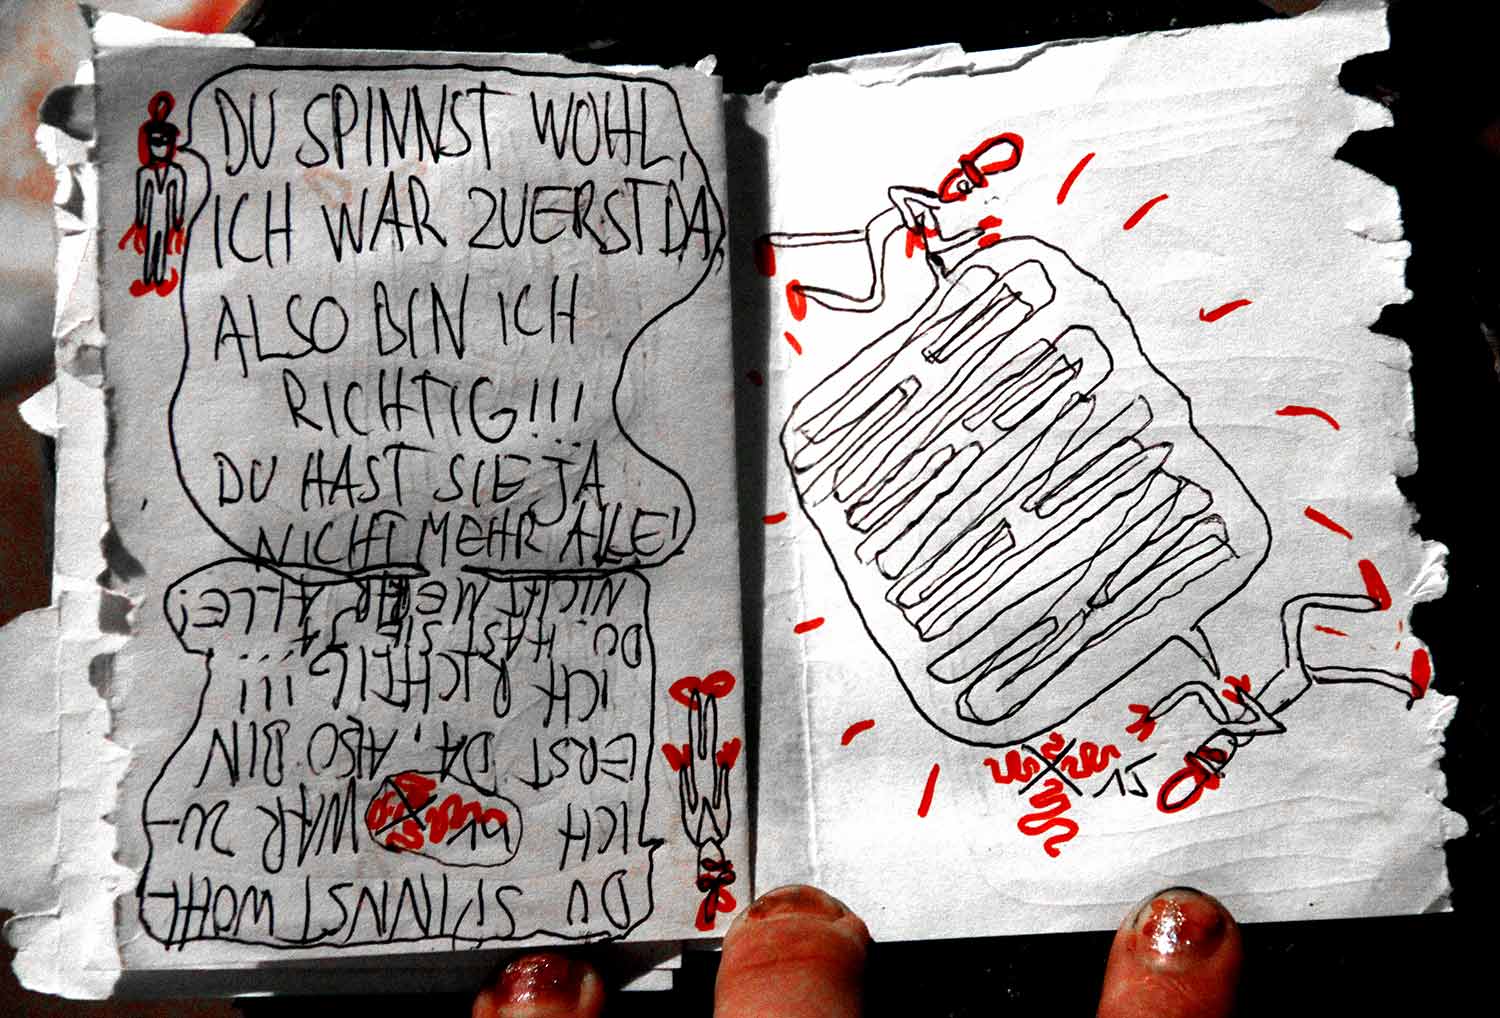 DU SPINNST WOHL,
ICH WAR ZUERST DA,
ALSO BIN ICH
RICHTIG!!!
DU HAST SIE JA
NICHT MEHR ALLE!
DU SPINNST WOHL
ICH WAR ZU-
ERST DA, ALSO BIN
ICH RICHTIG !!!
DU HAST SIE JA
NICHT MEHR ALLE!